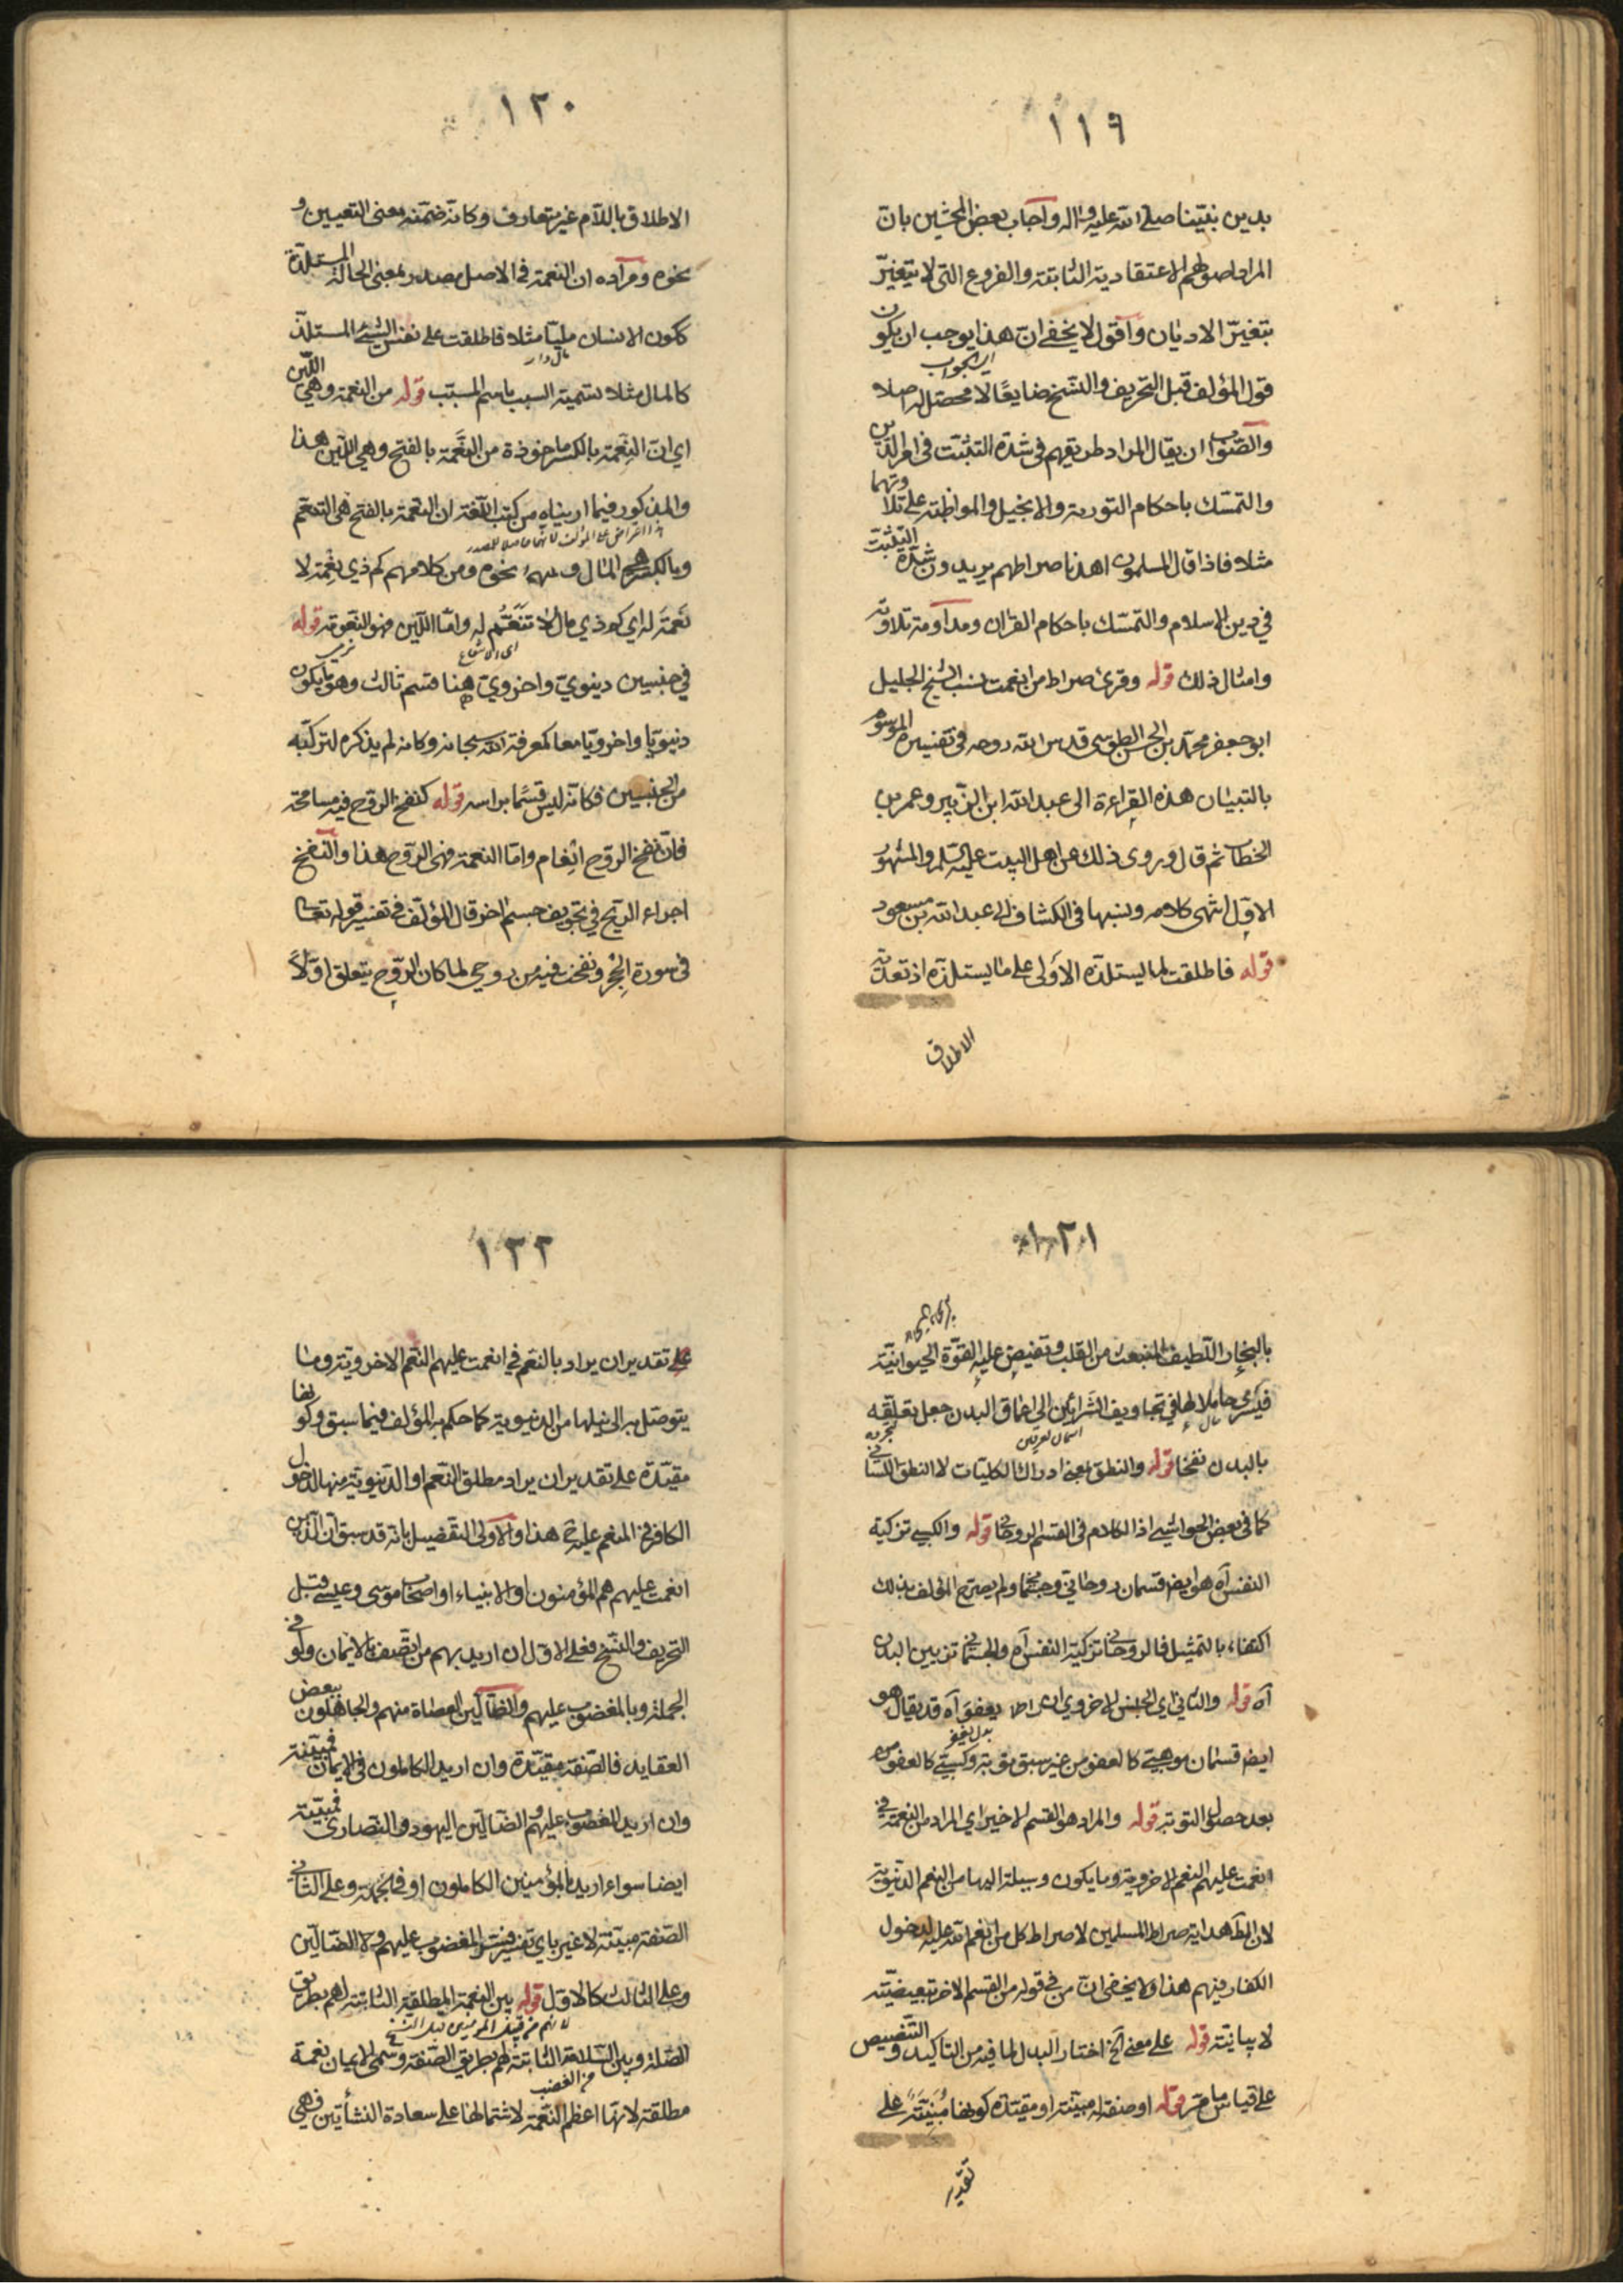 ١١٩
بدين نبيّنا صلى الله عليه واله واجاب بعض المحشين بان
المراد اصولهم الاعتقادية الثابتة والفروع التى لا يتغيّر
بتغيّر الاديان واقول لا يخفى ان هذا يوجب ان يكون
اى الجواب
قول المؤلف قبل التحريف والنسخ ضايعًا لا محصّل له اصلا
والصواب ان يقال المراد طريقهم فى شدّة التثبّت فى امر الدّين
والتمسّك باحكام التورية والانجيل والمواظبة على تلاوتهما
مثلا فاذا قال المسلمون اهدنا صراطهم يريدون شدّة التثبّت
في دين الاسلام والتمسّك باحكام القران ومداومة تلاوته
وامثال ذلك قوله وقرئ صراط من انعمت نسب الشيخ الجليل
ابو جعفر محمد بن الحسن الطوسى قدس الله روحه فى تفسيره الموسوم
بالتبيان هذه القراءة الى عبد الله ابن الزبير وعمر بن
الخطاب ثم قال وروى ذلك عن اهل البيت عليهم السلم والمشهور
الاوّل انتهى كلامه ونسبها فى الكشاف الى عبد الله بن مسعود
قوله فاطلقت لما يستلذه الاولى على ما يستلذه اذ تعدية
الاطلاق
١٢٠
الاطلاق باللام غير متعارف وكانه ضمّنه معنى التعيين و
نحوه ومراده ان النعمة فى الاصل مصدر بمعنى الحالة المستلذة
ككون الانسان مليّا مثلا فاطلقت على نفس الشئ المستلذّ
مال دار
كالمال مثلا تسمية السبب باسم المسبب قوله من النعمة وهى اللّين
اي ان النِعمة بالكسر ماخوذة من النَعمة بالفتح وهى اللّين هذا
والمذكور فيما رايناه من كتب اللّغة ان النعمة بالفتح هى التنعّم
وبالكسر هى المال ونحوه ومن كلامهم كم ذي نِعمة لا
نَعمة له اي كم ذي مال لا تنعّم له وامّا اللّين فهو النعومة قوله
فى جنسين دنيويّ واخرويّ ههنا قسم ثالث وهو ما يكون
دنيويّا واخرويّا معا كمعرفة الله سبحانه وكانه لم يذكره لتركّبه
من الجنسين فكانه ليس قسمًا براسه قوله كنفخ الروح فيه مسامحة
فان نفخ الروح انعام وامّا النعمة فهى الروح هذا والنفخ
اجراء الريح فى تجويف جسم اخر قال المؤلف فى تفسير قوله تعالى
فى سورة الحجر ونفخت فيه من روحي لما كان الروح يتعلق اوّلاً
١٢١
بالبخار اللّطيف المنبعث من القلب وتفيض عليه القوّة الحيوانيّة
فيسري حاملا لها فى تجاويف الشرائين الى اعماق البدن جعل تعلّقه
بالبدن نفخًا قوله والنطق يعنى ادراك الكليات لا النطق اللسانى
كما فى بعض الحواشى اذ الكلام فى القسم الروحانى قوله والكسبى تزكية
النفس آه هو ايضا قسمان روحانى وجسمانى ولم يصرّح المؤلف بذلك
اكتفاء بالتمثيل فالروحانى تزكية النفس آه والجسمانى تزيين البدن
آه قوله والثانى اي الجنس الاخروي ان يعفو آه قد يقال هو
ايضا قسمان موهبىّ كالعفو من غير سبق توبة وكسبىّ كالعفو من
بعد حصول التوبة قوله والمراد هو القسم الاخير اي المراد من النعمة فى
انعمت عليهم النعم الاخروية وما يكون وسيلة اليها من النعم الدنيوية
لان المطلوب هداية صراط المسلمين لا صراط كل من انعم الله عليه لدخول
الكفار فيهم هذا ولا يخفى ان من فى قوله من القسم الاخر تبعيضيّة
لا بيانيّة قوله على معنى آخ اختار البدل لما فيه من التاكيد والتنصيص
على قياس ما مرّ قوله او صفة له مبيّنة او مقيّدة كونها مبيّنة على
تقدير
١٢٢
على تقدير ان يراد بالنعم فى انعمت عليهم النعم الاخروية وما
يتوصّل به الى نيلها من الدنيوية كما حكم به المؤلف فيما سبق وكونها
مقيّدة على تقدير ان يراد مطلق النعم او الدنيوية منها لدخول
الكافر فى المنعم عليه هذا والاولى التفصيل بانه قد سبق ان الذين
انعمت عليهم هم المؤمنون او الانبياء او اصحاب موسى وعيسى قبل
التحريف والنسخ فعلى الاوّل ان اريد بهم من اتّصف بالايمان ولو فى
الجملة وبالمغضوب عليهم والضالّين العصاة منهم والجاهلون ببعض
العقايد فالصفة مقيّدة وان اريد الكاملون فى الايمان فمبيّنة
وان اريد بالمغضوب عليهم والضالّين اليهود والنصارى فمبيّنة
ايضا سواء اريد بالمؤمنين الكاملون او فى الجملة وعلى الثانى
الصّفة مبيّنة لا غير باي تفسير فسّر المغضوب عليهم ولا الضالّين
وعلى الثالث كالاوّل قوله بين النعمة المطلقة الثابتة لهم بطريق
الصلة وبين السّلامة الثابتة لهم بطريق الصّفة وسمّى الايمان نعمة
من الغضب
مطلقة لانها اعظم النعمة لاشتمالها على سعادة النشأتين فهي